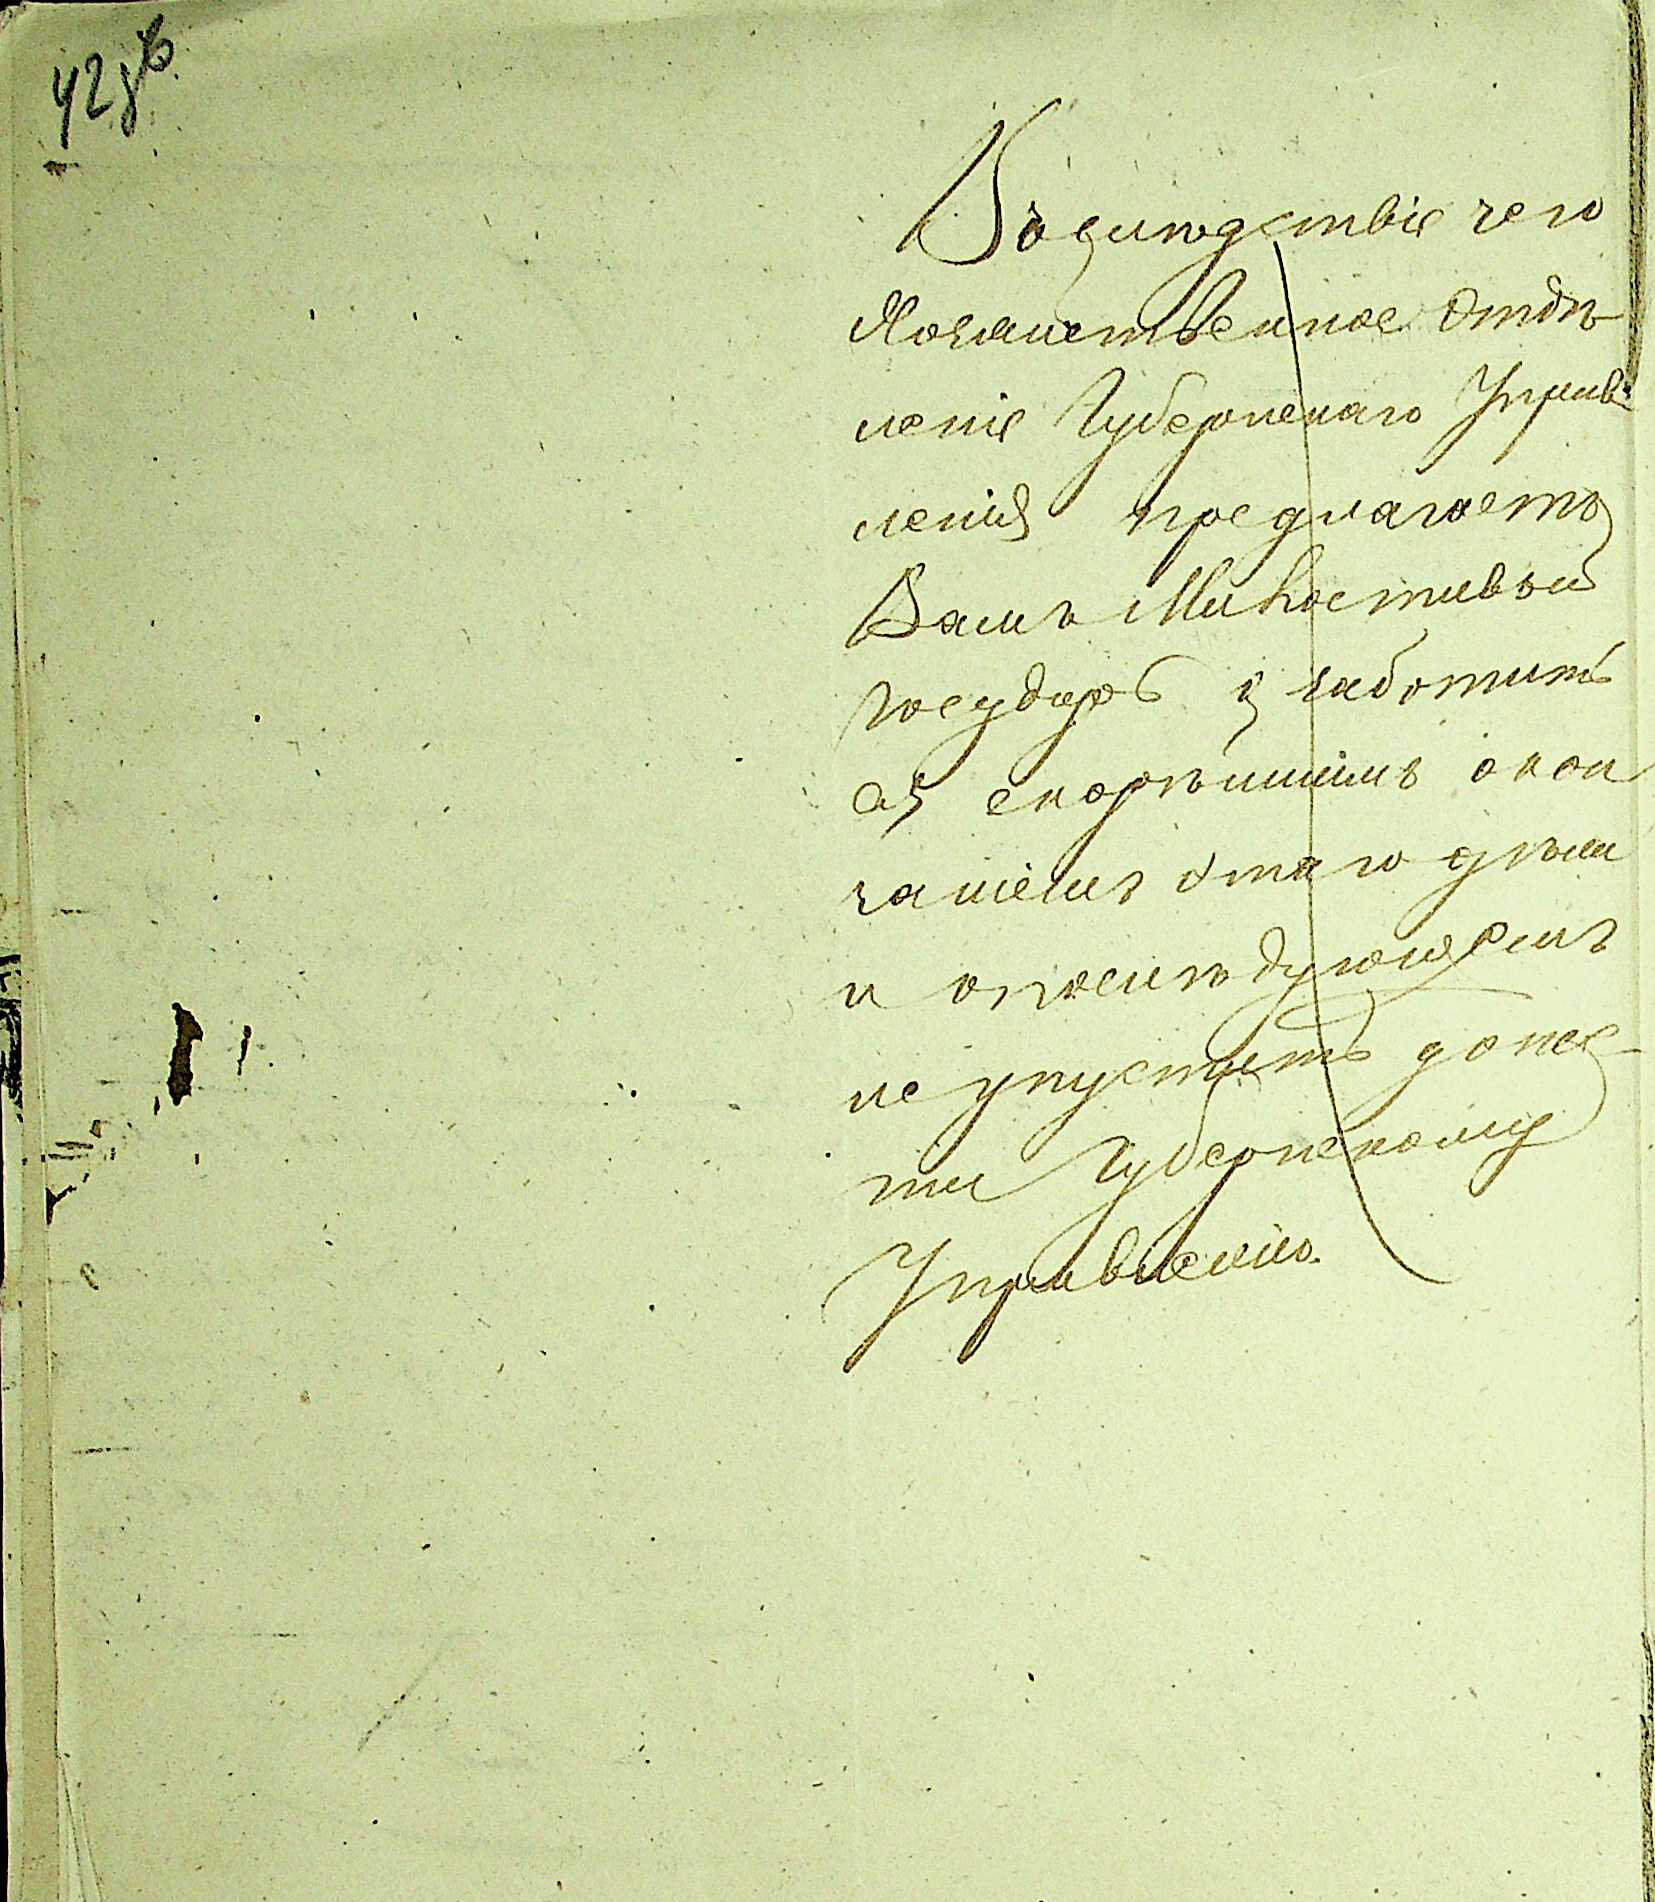 42 об
Вослѣдствіе чего
Хозяиственное Отдѣ-
леніе Губернскаго Управ-
ленія предлагаетъ
Вамъ Милостивый
Государь озаботить
ся скорѣишимъ окон
чаніемъ этаго дѣла
и опослѣдующемъ
не упустить донес-
ти Губернскому
Управленію.